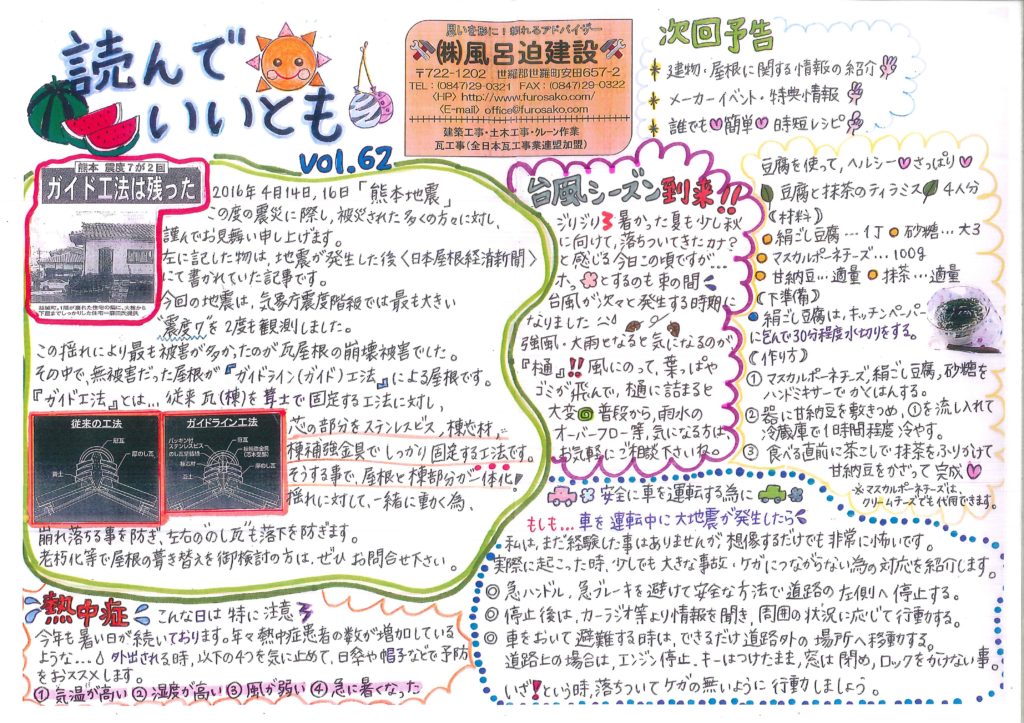 読んでいいとも
vol.62
思いを形に！頼れるアドバイザー
㈱風呂迫建設
〒722-1202 世羅郡世羅町安田657-2
TEL：(0847)29-0321 FAX：(0847)29-0322
〈HP〉http://www.furosako.com/
〈E-mail〉office@furosako.com
建築工事・土木工事・クレーン作業
瓦工事(全日本瓦工事業連盟加盟)
次回予告
建物・屋根に関する情報の紹介
メーカーイベント・特典情報
誰でも♡簡単♡時短レシピ
熊本 震度7が2回
ガイド工法は残った
2016年4月14日,16日「熊本地震」
この度の震災に際し、被災された多くの方々に対し、
謹んでお見舞い申し上げます。
左に記した物は、地震が発生した後〈日本屋根経済新聞〉
にて書かれていた記事です。
今回の地震は、気象庁震度階級では最も大きい
"震度7"を2度も観測しました。
この揺れにより最も被害が多かったのが瓦屋根の崩壊被害でした。
その中で、無被害だった屋根が『ガイドライン(ガイド)工法』による屋根です。
『ガイド工法』とは… 従来 瓦(棟)を葺土で固定する工法に対し、
従来の工法
冠瓦
厚のし瓦
葺土
ガイドライン工法
冠瓦
パッキン付ステンレスビス
のし瓦緊結線
棟芯材
棟補強金具
厚のし瓦
葺土
芯の部分をステンレスビス、棟芯材、
棟補強金具でしっかり固定する工法です。
そうする事で、屋根と棟部分が一体化！
揺れに対して、一緒に動く為、
崩れ落ちる事を防ぎ、左右ののし瓦も落下を防ぎます。
老朽化等で屋根の葺き替えを御検討の方は、ぜひ お問合せ下さい。
台風シーズン到来!!
ジリジリ 暑かった夏も少し秋
に向けて、落ちついてきたカナ？
と感じる今日この頃ですが…
ホッ とするのも束の間
台風が次々と発生する時期に
なりました
強風・大雨となると気になるのが
『樋』!! 風にのって、葉っぱや
ゴミが飛んで、樋に詰まると
大変 普段から、雨水の
オーバーフロー等、気になる方は、
お気軽にご相談下さいね。
豆腐を使って、ヘルシー♡さっぱり♡
豆腐と抹茶のティラミス 4人分
〈材料〉
絹ごし豆腐…1丁 砂糖…大3
マスカルポーネチーズ…100g
甘納豆…適量 抹茶…適量
〈下準備〉
絹ごし豆腐は、キッチンペーパー
に包んで30分程度水切りをする。
〈作り方〉
① マスカルポーネチーズ,絹ごし豆腐,砂糖を
ハンドミキサーでかくはんする。
② 器に甘納豆を敷きつめ、①を流し入れて
冷蔵庫で1時間程度冷やす。
③ 食べる直前に茶こしで抹茶をふりかけて
甘納豆をかざって完成♡
※マスカルポーネチーズは、
クリームチーズでも代用できます。
安全に車を運転する為に
もしも…車を運転中に大地震が発生したら
私は、まだ経験した事はありませんが、想像するだけでも非常に怖いです。
実際に起こった時、少しでも大きな事故・ケガにつながらない為の対応を紹介します。
◎ 急ハンドル、急ブレーキを避けて安全な方法で道路の左側へ停止する。
◎ 停止後は、カーラジオ等より情報を聞き、周囲の状況に応じて行動する。
◎ 車をおいて避難する時は、できるだけ道路外の場所へ移動する。
道路上の場合は、エンジン停止、キーはつけたまま、窓は閉め、ロックをかけない事。
いざ！という時、落ちついてケガの無いように行動しましょう。
熱中症
こんな日は特に注意
今年も暑い日が続いております。年々熱中症患者の数が増加している
ような… 外出される時、以下の4つを気に止めて、日傘や帽子などで予防
をおススメします。
①気温が高い ②湿度が高い ③風が弱い ④急に暑くなった